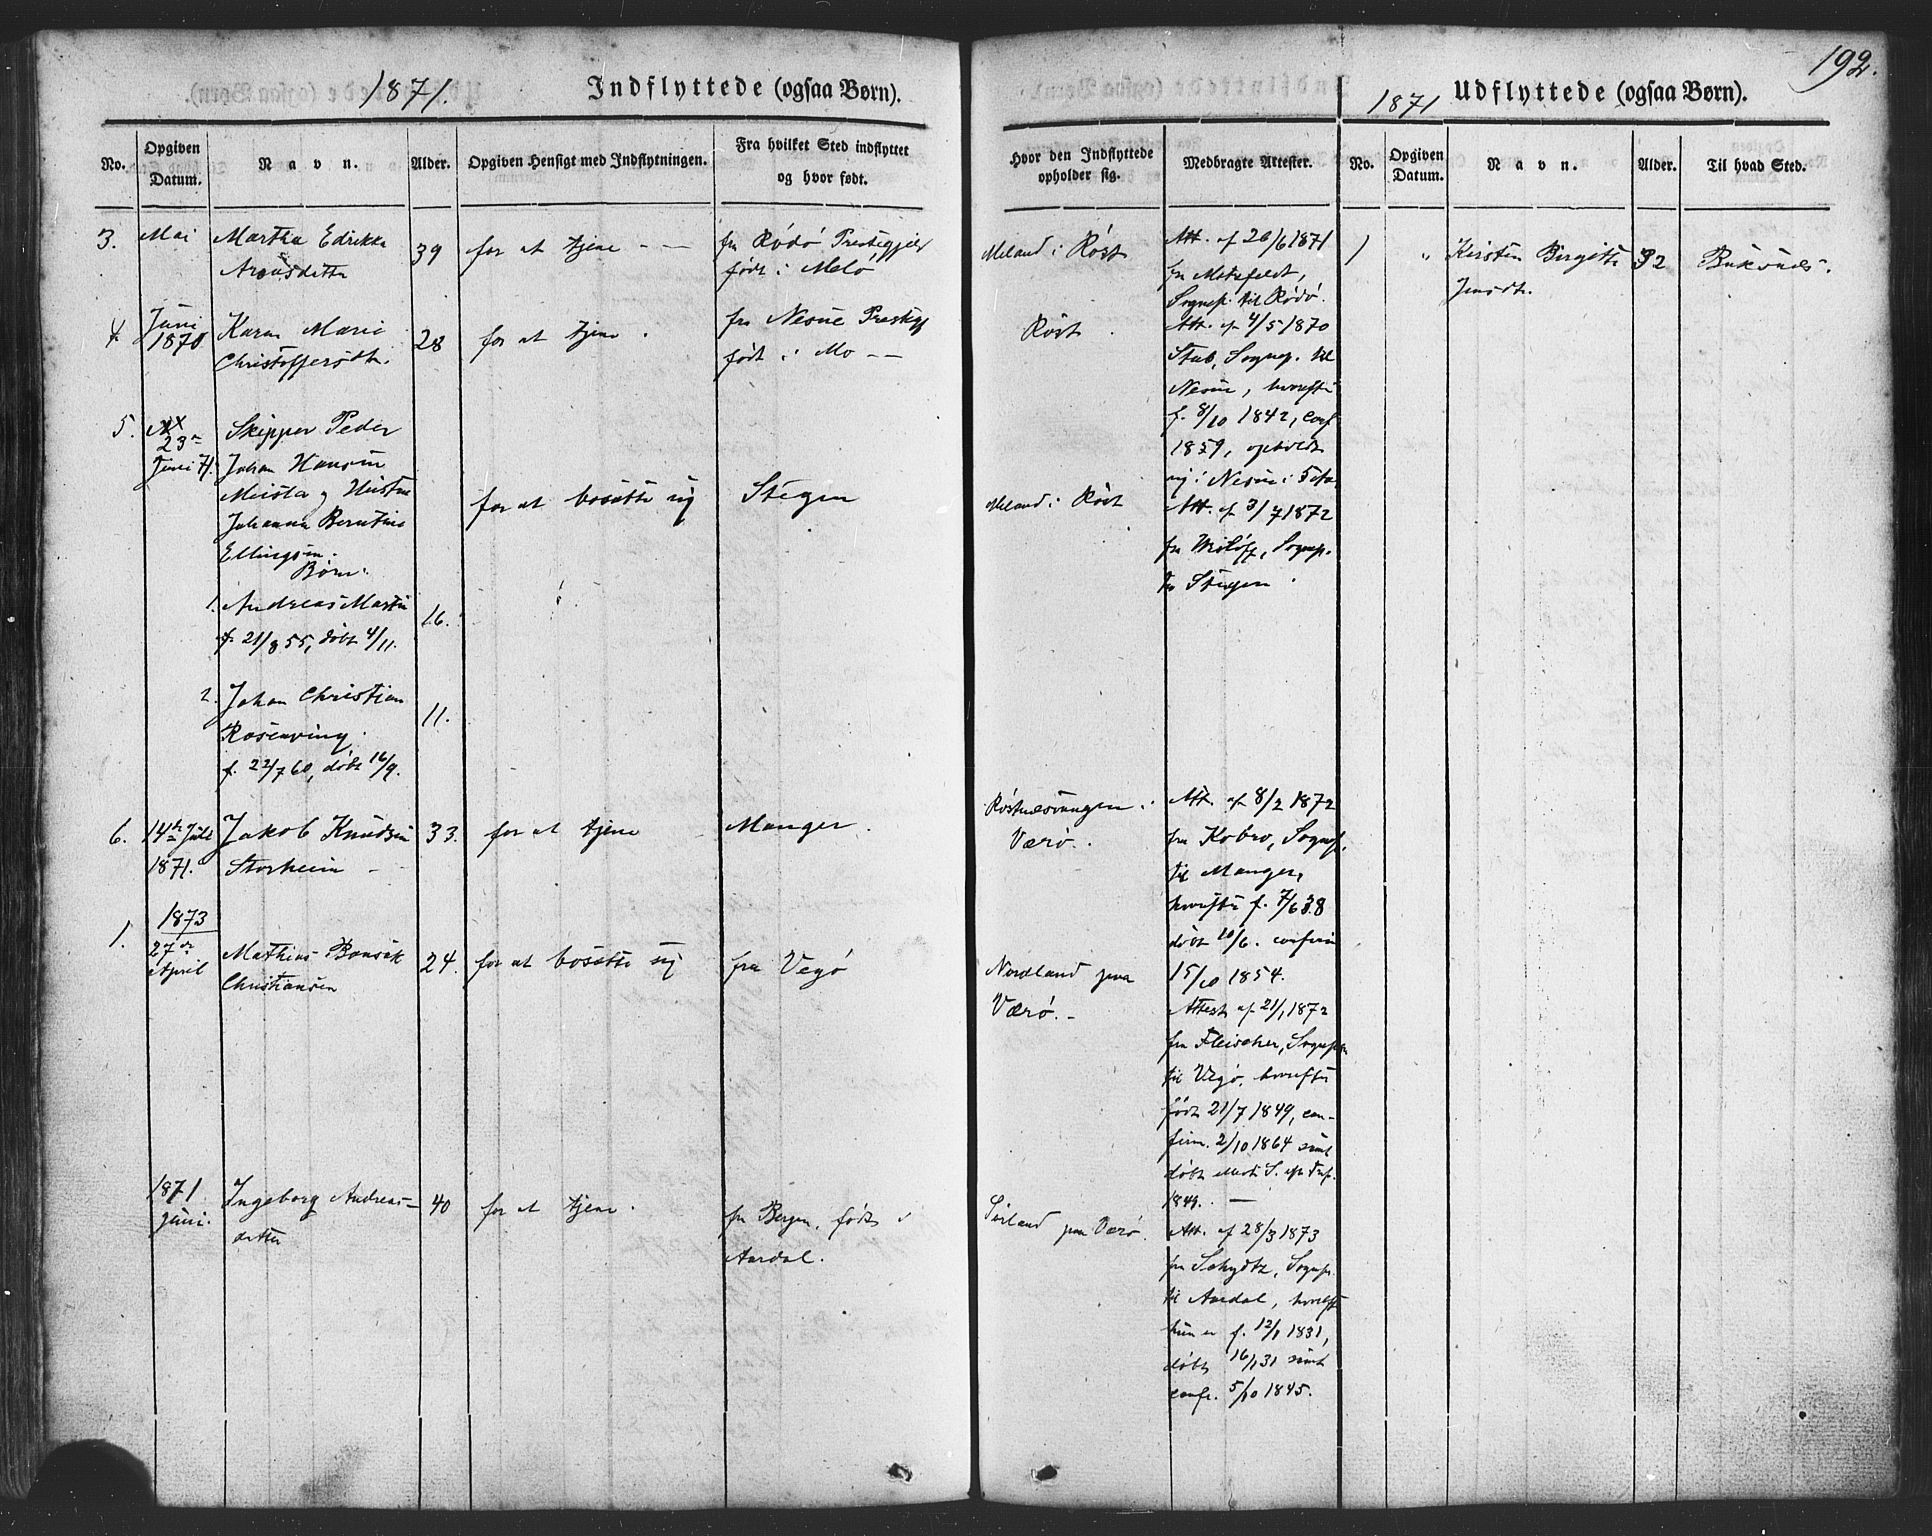 192.
1871.
Indflyttede (ogsaa Børn).
No.
Opgiven Datum.
Navn.
Alder.
Opgiven Hensigt med Indflytningen.
Fra hvilket Sted indflyttet
og hvor født.
Hvor den Indflyttede
opholder sig.
Medbragte Attester.
1871
Udflyttede (ogsaa Børn).
No.
Opgiven Datum.
Navn.
Alder.
Til hvad Sted.
3.
Mai
Martha Edrikke
39
for at tjene - -
fra Rødø Prestegjeld
født i Melø
Meland i Røst
Att. af 26/6 1871
fra
Sognep. til Rødø.
4.
Juni
1870
Karen Marie
Christoffersdtr.
28
for at tjene.
fra Nesne Prestegj
født i Mo - -
Røst
Att. af 4/5 1870
Stub, Sognep. til
Nesne, hvorefter
f. 8/10 1842, conf
1859, opholdt
sig i Nesne i
5.
23de
Juni 71.
Skipper Peder
Johan Hansen
og Hustru
Johanna Berntine
Ellingsen.
Børn:
for at bosætte sig
Stegen
Meland i Røst
Att. af 3/7 1872
fra
Sognep.
Stegen.
1. Andreas Martin
f. 21/8 55, døbt 4/11.
16.
2. Johan Christian
Rosenving.
f. 22/7 60, døbt 16/9.
11.
6.
14de Juli
1871.
Jakob Knudsen
Storheim -
33.
for at tjene
Manger.
Røstnesvaagen i
Værø.
Att. af 8/2 1872
fra Kobro, Sognep.
til Manger,
hvorefter f. 7/6 38
døbt 10/6. confirm
15/10 1854.
1873
1.
27de
April
Mathias Bonsak
Christiansen
24.
for at bosætte sig
fra Vegø
Nordland paa
Værø. -
Attest af 21/1 1872
fra Fleischer, Sognep
til Vegø, hvorefter
født 21/7 1849, con-
firm. 2/10 1864 samt
døbt
1849. -
1871
Juni.
Ingeborg Andreas-
datter
40
for at tjene.
fra Bergen, født i
Aardal.
Sørland paa Værø.
Att. af 28/3 1873
fra Schydtz, Sognep.
til Aardal, hvorefter
hun er f. 12/1 1831,
døbt 16/1 31 samt
confr. 5/10 1845.
1
"
Kirsten Birgitte
Jensdtr.
32
Buksnæs.